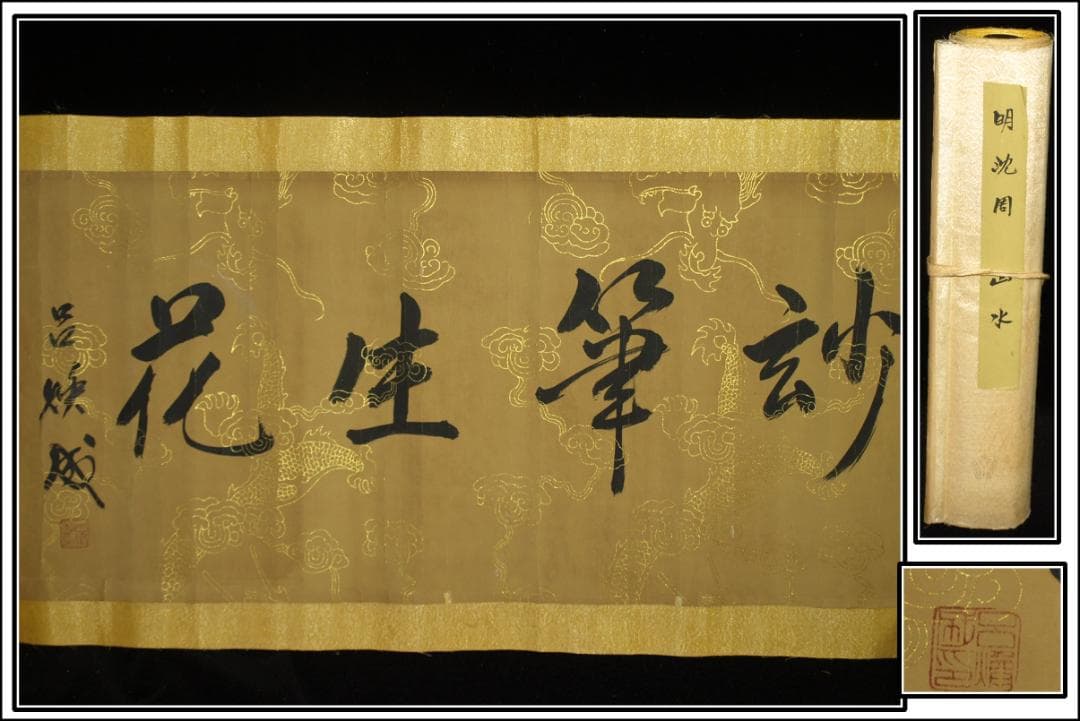 玅筆生花
呂煥成
明沈周山水